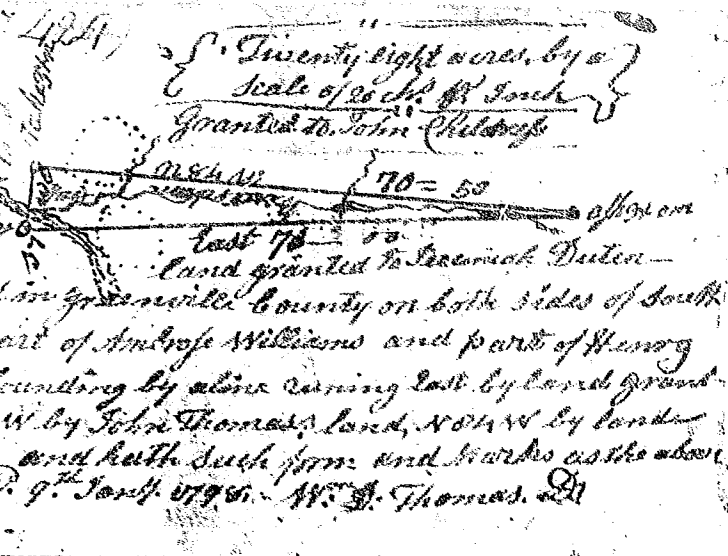 424)
Twenty eight acres, by a
Scale of 20 chs. pr Inch
Granted to John Childress
N84W
70 = 50
East 70 = 50
land granted to Duten
in Greenville County on both sides of South
part of Ambrose Williams and part of Henry
bounding by aline runing East by land grant
W by John Thomass land, N84W by land
and hath Such form and Marks as the above
9th Jany. 1798. Wm. D. Thomas. D.S